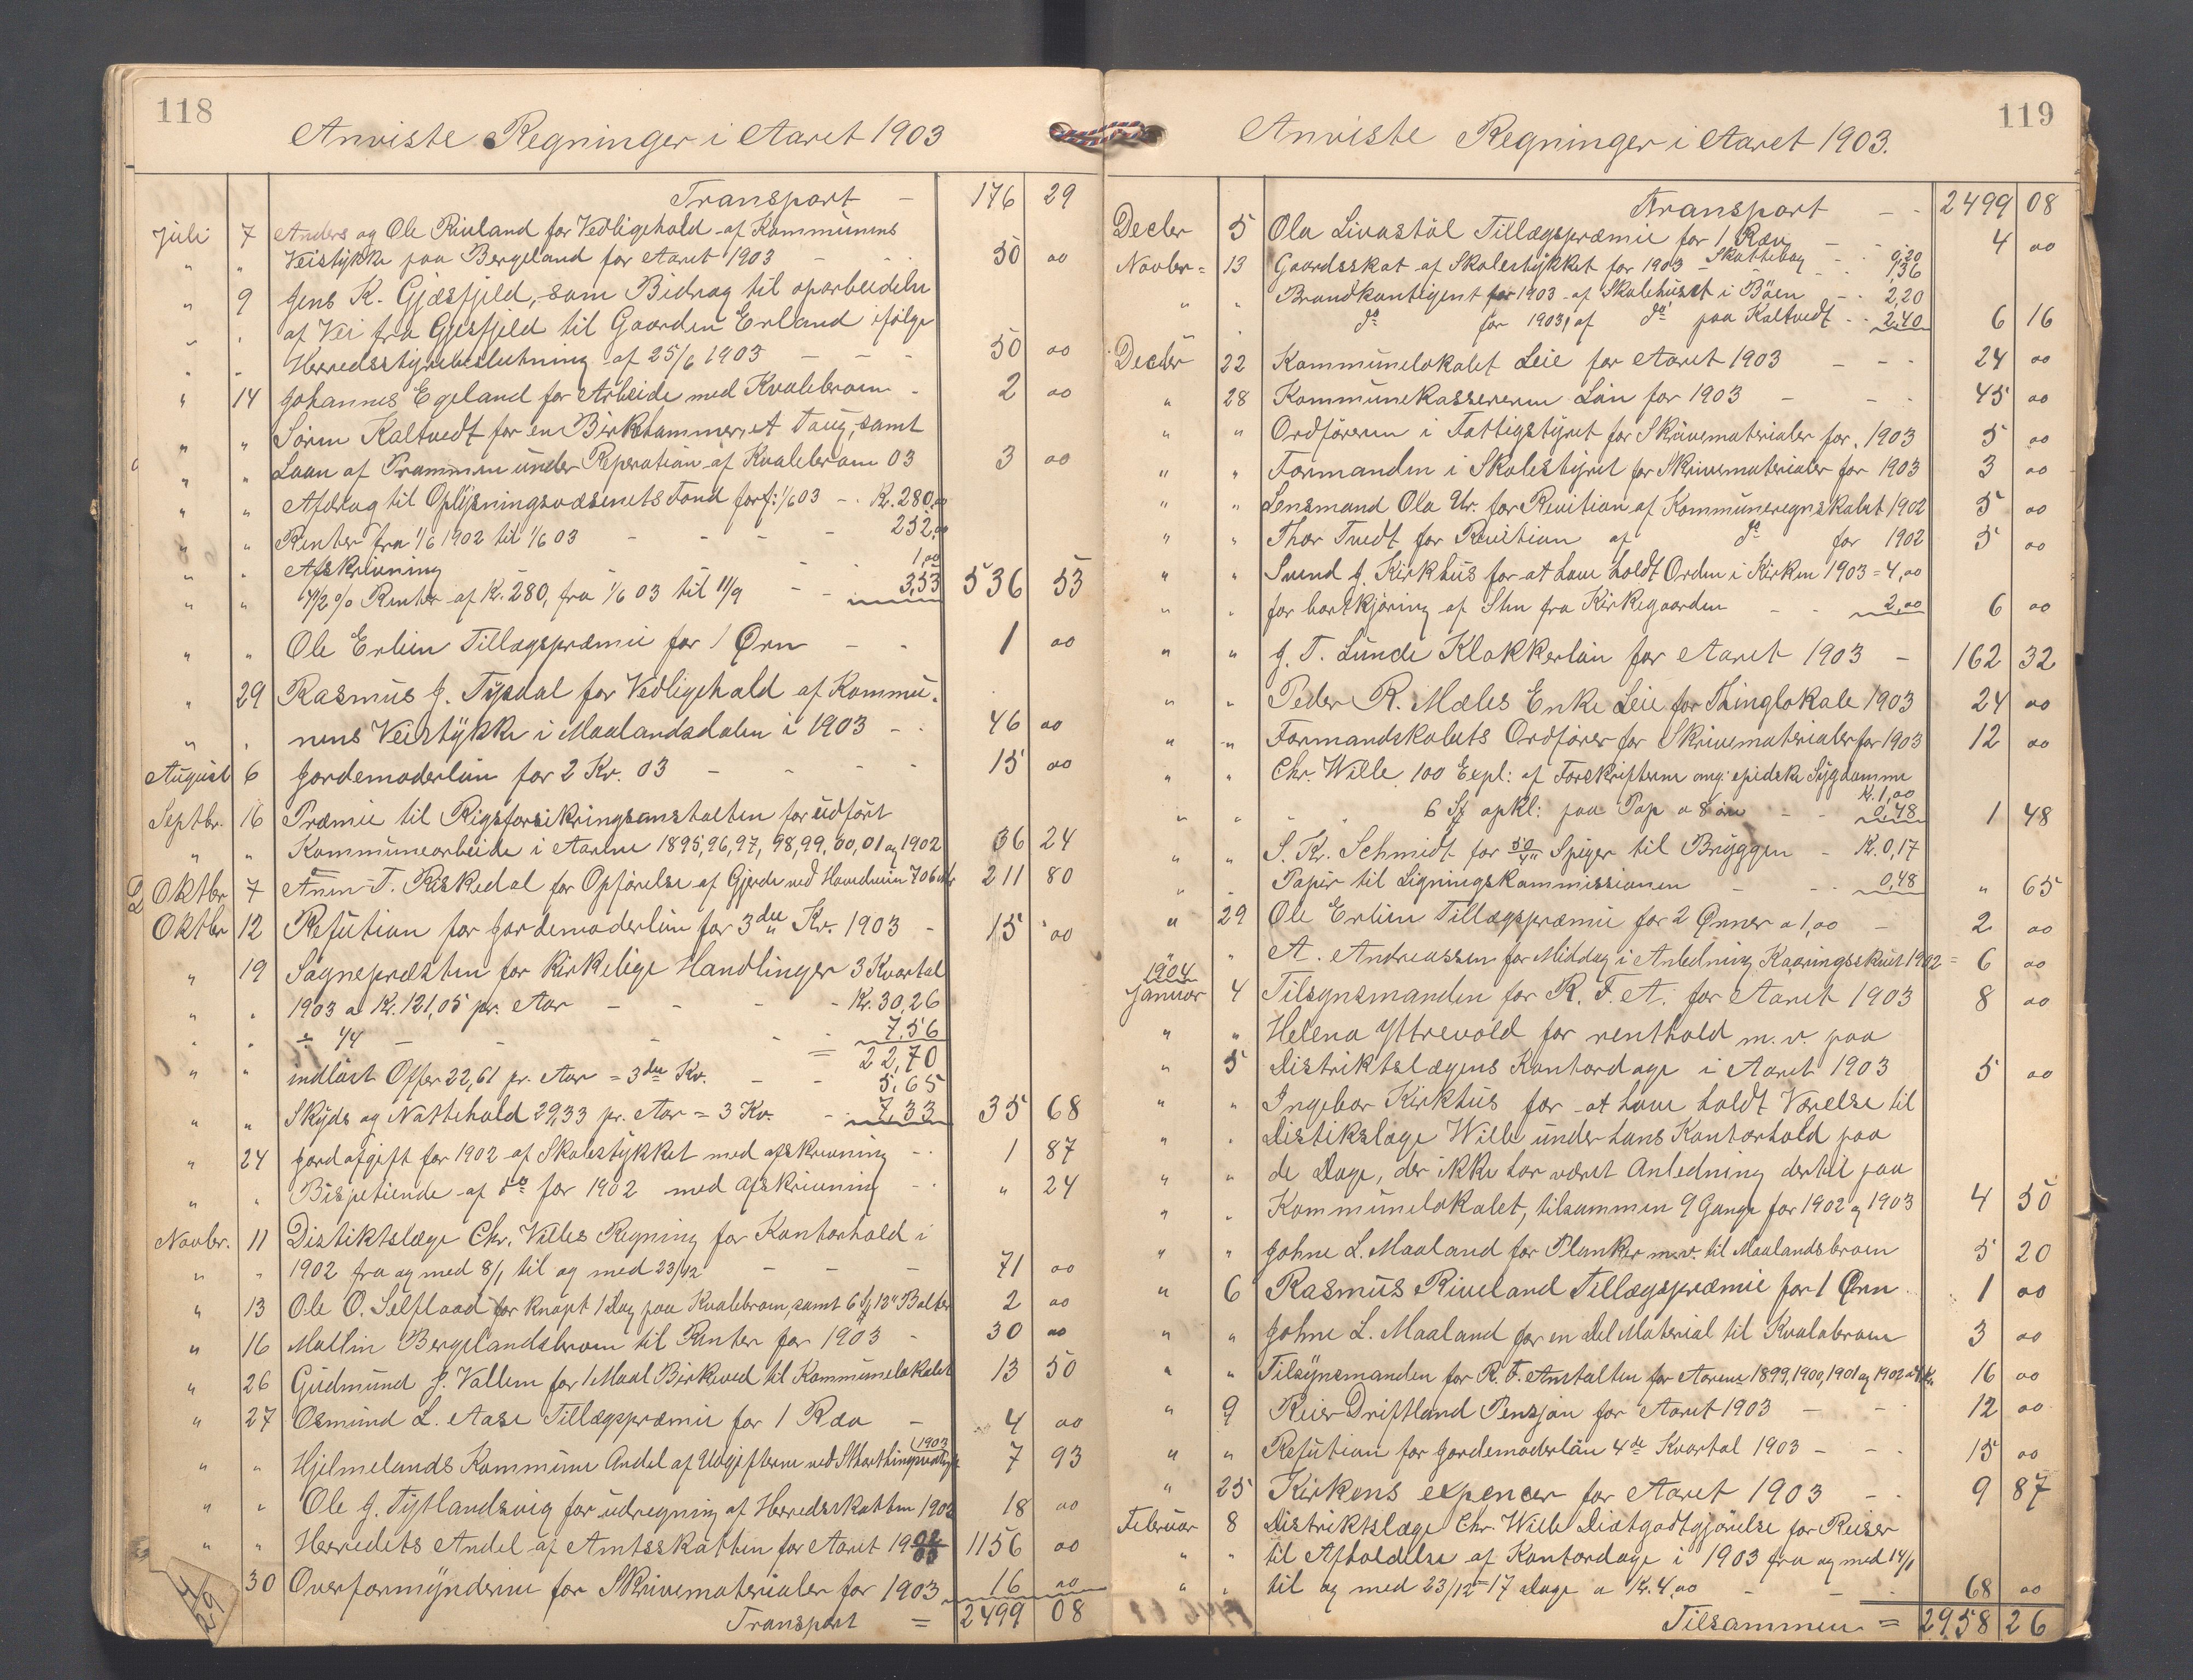 118
Anviste Regninger i Aaret 1903
Transport - 176 29
Juli 7 Anders og Ole Riveland for Vedligehold af Kommunens
" " Veistykke paa Bergeland for Aaret 1903 - 50 00
" 9 Jens K. Gjæsfjeld, som Bidrag til oparbeidelse
" " af Vei fra Gjesfjeld til Gaarden Erland ifølge
" " Herredsstyrebeslutning af 25/6 1903 - - - 50 00
" 14 Johannes Egeland for Arbeide med Kvalebroen - 2 00
" " Søren Kaltvedt for en Birkhammer, et Taug, samt
" " Laan af Prammen under Reperation af Kvalebroen 03 3 00
" " Afdrag til Oplysningsvæsenets Fond forf: 1/6 03 - Kr. 280,00
" " Renter fra 1/6 1902 til 1/6 03 - - - - 252,00
" " Afskrivning 1,00
" " 4 1/2 % Renter af Kr. 280, fra 1/6 03 til 11/9 - - 3,53 536 53
" " Ole Erlien Tillægspræmie for 1 Ørn - - 1 00
" 29 Rasmus J. Tysdal for Vedligehold af Kommu-
" " nens Veistykke i Maalandsdalen i 1903 - - 46 00
August 6 Jordemoderløn for 2 Kv. 03 - - - - 15 00
Septbr. 16 Præmie til Rigsforsikringsanstalten for udført
" " Kommunearbeide i Aarene 1895, 96, 97, 98, 99, 00, 01 og 1902 36 24
Oktbr 7 T. Riskedal for Opførelse af Gjerde ved 211 80
Oktbr 12 Refution for Jordemoderløn for 3die Kv. 1903 - 15 00
" 19 Sognepræsten for kirkelige Handlinger 3 Kvartal
" " 1903 a Kr. 121,05 pr. Aar - - - - Kr. 30,26
" " ÷ 1/4 - - - - - 7,56
= 22,70
" " indløst Offer 22,61 pr. Aar = 3die Kv. - - 5,65
" " Skyds og Nattehold 29,33 pr. Aar = 3 Kv. - 7,33 35 68
" 24 Jordafgift for 1902 af Skolestykket med afskrivning - 1 87
" " Bispetiende af do for 1902 med Afskrivning - " 24
Novbr. 11 Distiktslæge Chr. Willes Regning for Kontorhold i
" " 1902 fra og med 8/1 til og med 23/12 - - - 71 00
" 13 Ole O. Selflaad for knapt 1 Dag paa Kvalebroen, samt 6 St 12" Bolter 2 00
" 16 Mællin Bergelandsbroen til Renter for 1903 - 30 00
" 26 Gudmund J. Vallem for 1 Maal Birkeved til Kommunelokalet 13 50
" 27 Osmund L. Aase Tillægspræmie for 1 Ræv - 4 00
" " Hjelmelands Kommune Andel af Udgifterne ved Storthingsvalget 1903 7 93
" " Ole J. Tytlandsvig for udregning af Herredsskatten 1903 18 00
" " Herredets Andel af Amtsskatten for Aaret 1903 1156 00
30 Overformynderne for Skrivematerialer for 1903 16 00
Transport = 2499 08
4/29
119
Anviste Regninger i Aaret 1903.
Transport - - 2499 08
Decbr 5 Ola Livastøl Tillægspræmie for 1 Ræv - - 4 00
Novbr = 13 Gaardsskat af Skolestykket for 1903 - Skattebog - - 0,20
1,36
" " Brandkontigent for 1903 af Skolehuset i Bøen - - 2,20
" do for 1903, af do paa Kaltvedt - - 2,40 6 16
Decbr 22 Kommunelokalet Leie for Aaret 1903 - - - 24 00
" 28 Kommunekassereren Løn for 1903 - - - 45 00
" " Ordføreren i Fattigstyret for Skrivematerialer for 1903 5 00
" " Formanden i Skolestyret for Skrivematerialer for 1903 3 00
" " Lensmand Ola Ur. for Revition af Kommuneregnskabet 1902 5 00
" " Thor Tvedt for Revition af do for 1902 5 00
" " Svend J. Kirkhus for at have holdt Orden i Kirken 1903 = 4,00
" " for bortkjøring af Sten fra Kirkegaarden - - 2,00 6 00
" " J. T. Lunde Klokkerløn for Aaret 1903 - 162 32
" " Peder R. Mæles Enke Leie for Thinglokale 1903 24 00
" " Formandskabets Ordfører for Skrivematerialer for 1903 12 00
" " Chr. Wille 100 Expl: af Forskrifterne ang: epidske Sygdomme
Kr. 1,00
" " 6 St opkl: paa Pap a 8 øre - - 0,48 1 48
" " S. Kr. Schmidt for 50/4" Spiger til Bryggen - Kr. 0,17
" " Papir til Ligningskommissionen - - - 0,48 " 65
" 29 Ole Erlien Tillægspræmie for 2 Ørner a 1,00 - 2 00
" " A. Andreassen for Middag i Anledning Kaaringsskuet 1902 = 6 00
1904
Januar 4 Tilsynsmanden for R. F. A. for Aaret 1903 8 00
" " Helena Yttrevold for renthold m.v. paa
" 5 Distriktslægens Kontordage i Aaret 1903 5 00
" " Ingebor Kirkhus for at have holdt Værelse til
" " Distikslæge Wille under hans Kontorhold paa
" " de Dage, der ikke har været Anledning dertil paa
" " Kommunelokalet, tilsammen 9 Gange for 1902 og 1903 4 50
" " Johne L. Maaland for Planker m.v. til Maalandsbroen 5 20
" 6 Rasmus Riveland Tillægspræmie for 1 Ørn 1 00
" " Johne L. Maaland for en Del Material til Kvalabroen 3 00
" " Tilsynsmanden for R. F. Anstalten for Aarene 1899, 1900, 1901 og 1902 a 4 Kr 16 00
" 9 Reier Driftland Pensjon for Aaret 1903 - - 12 00
" " Refution for Jordemoderløn 4de Kvartal 1903 - - - 15 00
" 25 Kirkens expencer for Aaret 1903 - - 9 87
Februar 8 Distriktslæge Chr. Wille Diætgodtgjørelse for Reiser
" " til Afholdelse af Kontordage i 1903 fra og med 14/1
" " til og med 23/12 = 17 Dage a Kr. 4,00 - - 68 00
Tilsammen = 2958 26